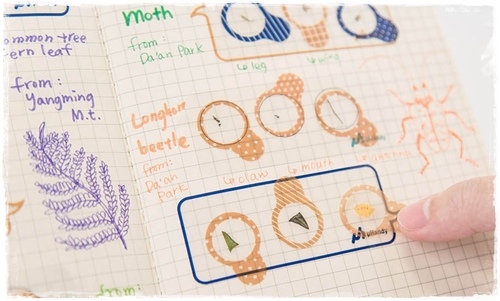 ommon tree
ern leaf
from:
Yangming
M.t.
from:
moth
from:
Da'an Park
leg
Longhorn
beetle
from:
Da'an
Park
claw
mouth